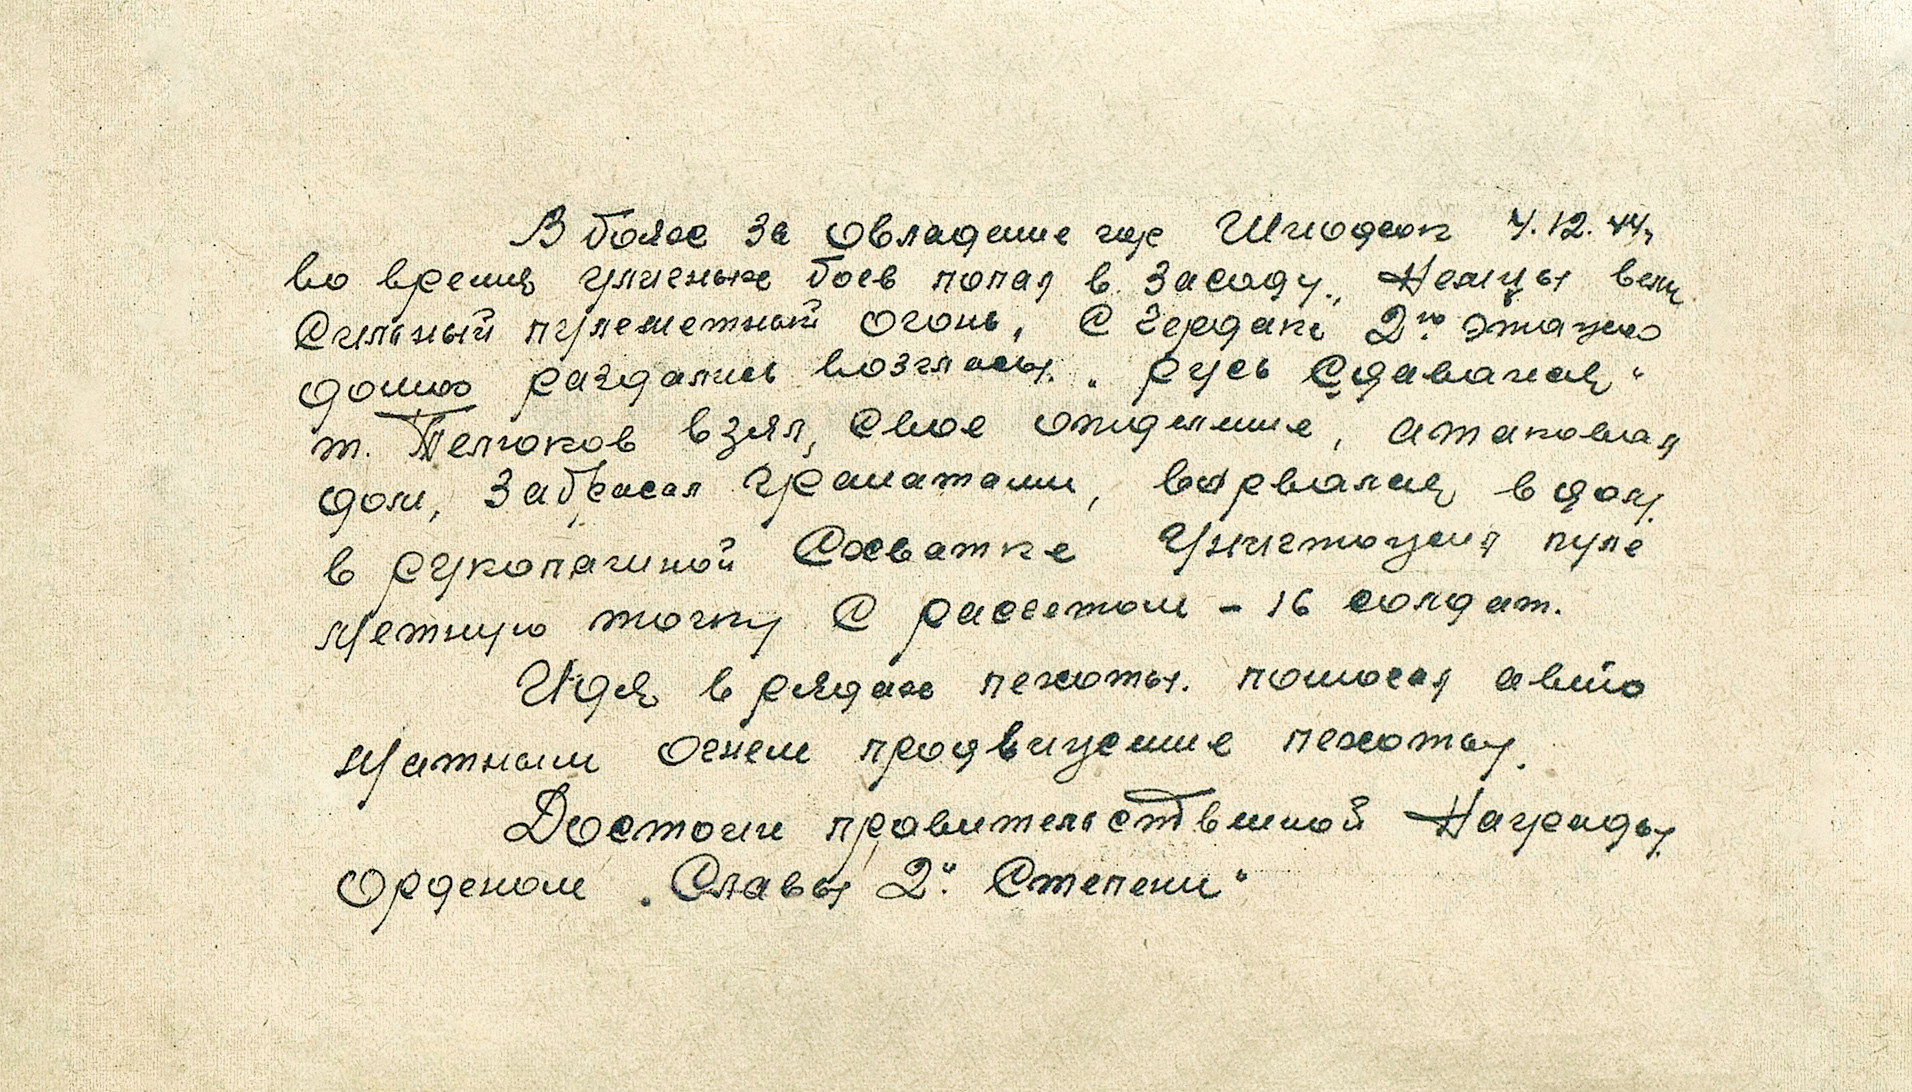 В боях за овладение гор Шиофок 4.12.44г
во время уличных боев попал в засаду., Немцы вели
сильный пулеметный огонь, с чердака 2го этажного
дома раздались возгласы. „Русь сдавайся"
т. Телюков взял, свое отделение, атаковал
дом, забросал гранатами, ворвался в дом
в рукопашной схватке уничтожил пуле
метную точку с рассетом – 16 солдат.
Идя в рядах пехоты. поносил авто
матным огнем продвижение пехоты.
Достоин правительственной Награды
Орденом „Славы 2й Степени"